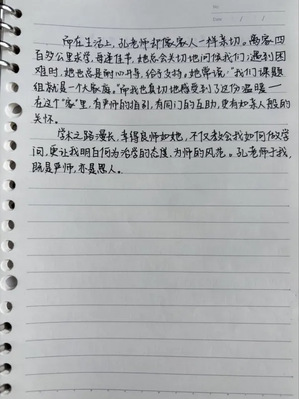 而在生活上，孔老师却像家人一样亲切。离家四
百多公里求学，每逢佳节，她总会关切地问候我们；遇到困
难时，她也总是耐心开导，给予支持。她常说，“我们课题
组就是一个大家庭。”而我也真切地感受到了这份温暖——
在这个“家”里，有严师的指引，有同门的互助，更有如亲人般的
关怀。
学术之路漫长，幸得良师如她，不仅教会我如何做学
问，更让我明白何为治学的态度，为师的风范。孔老师于我，
既是严师，亦是恩人。